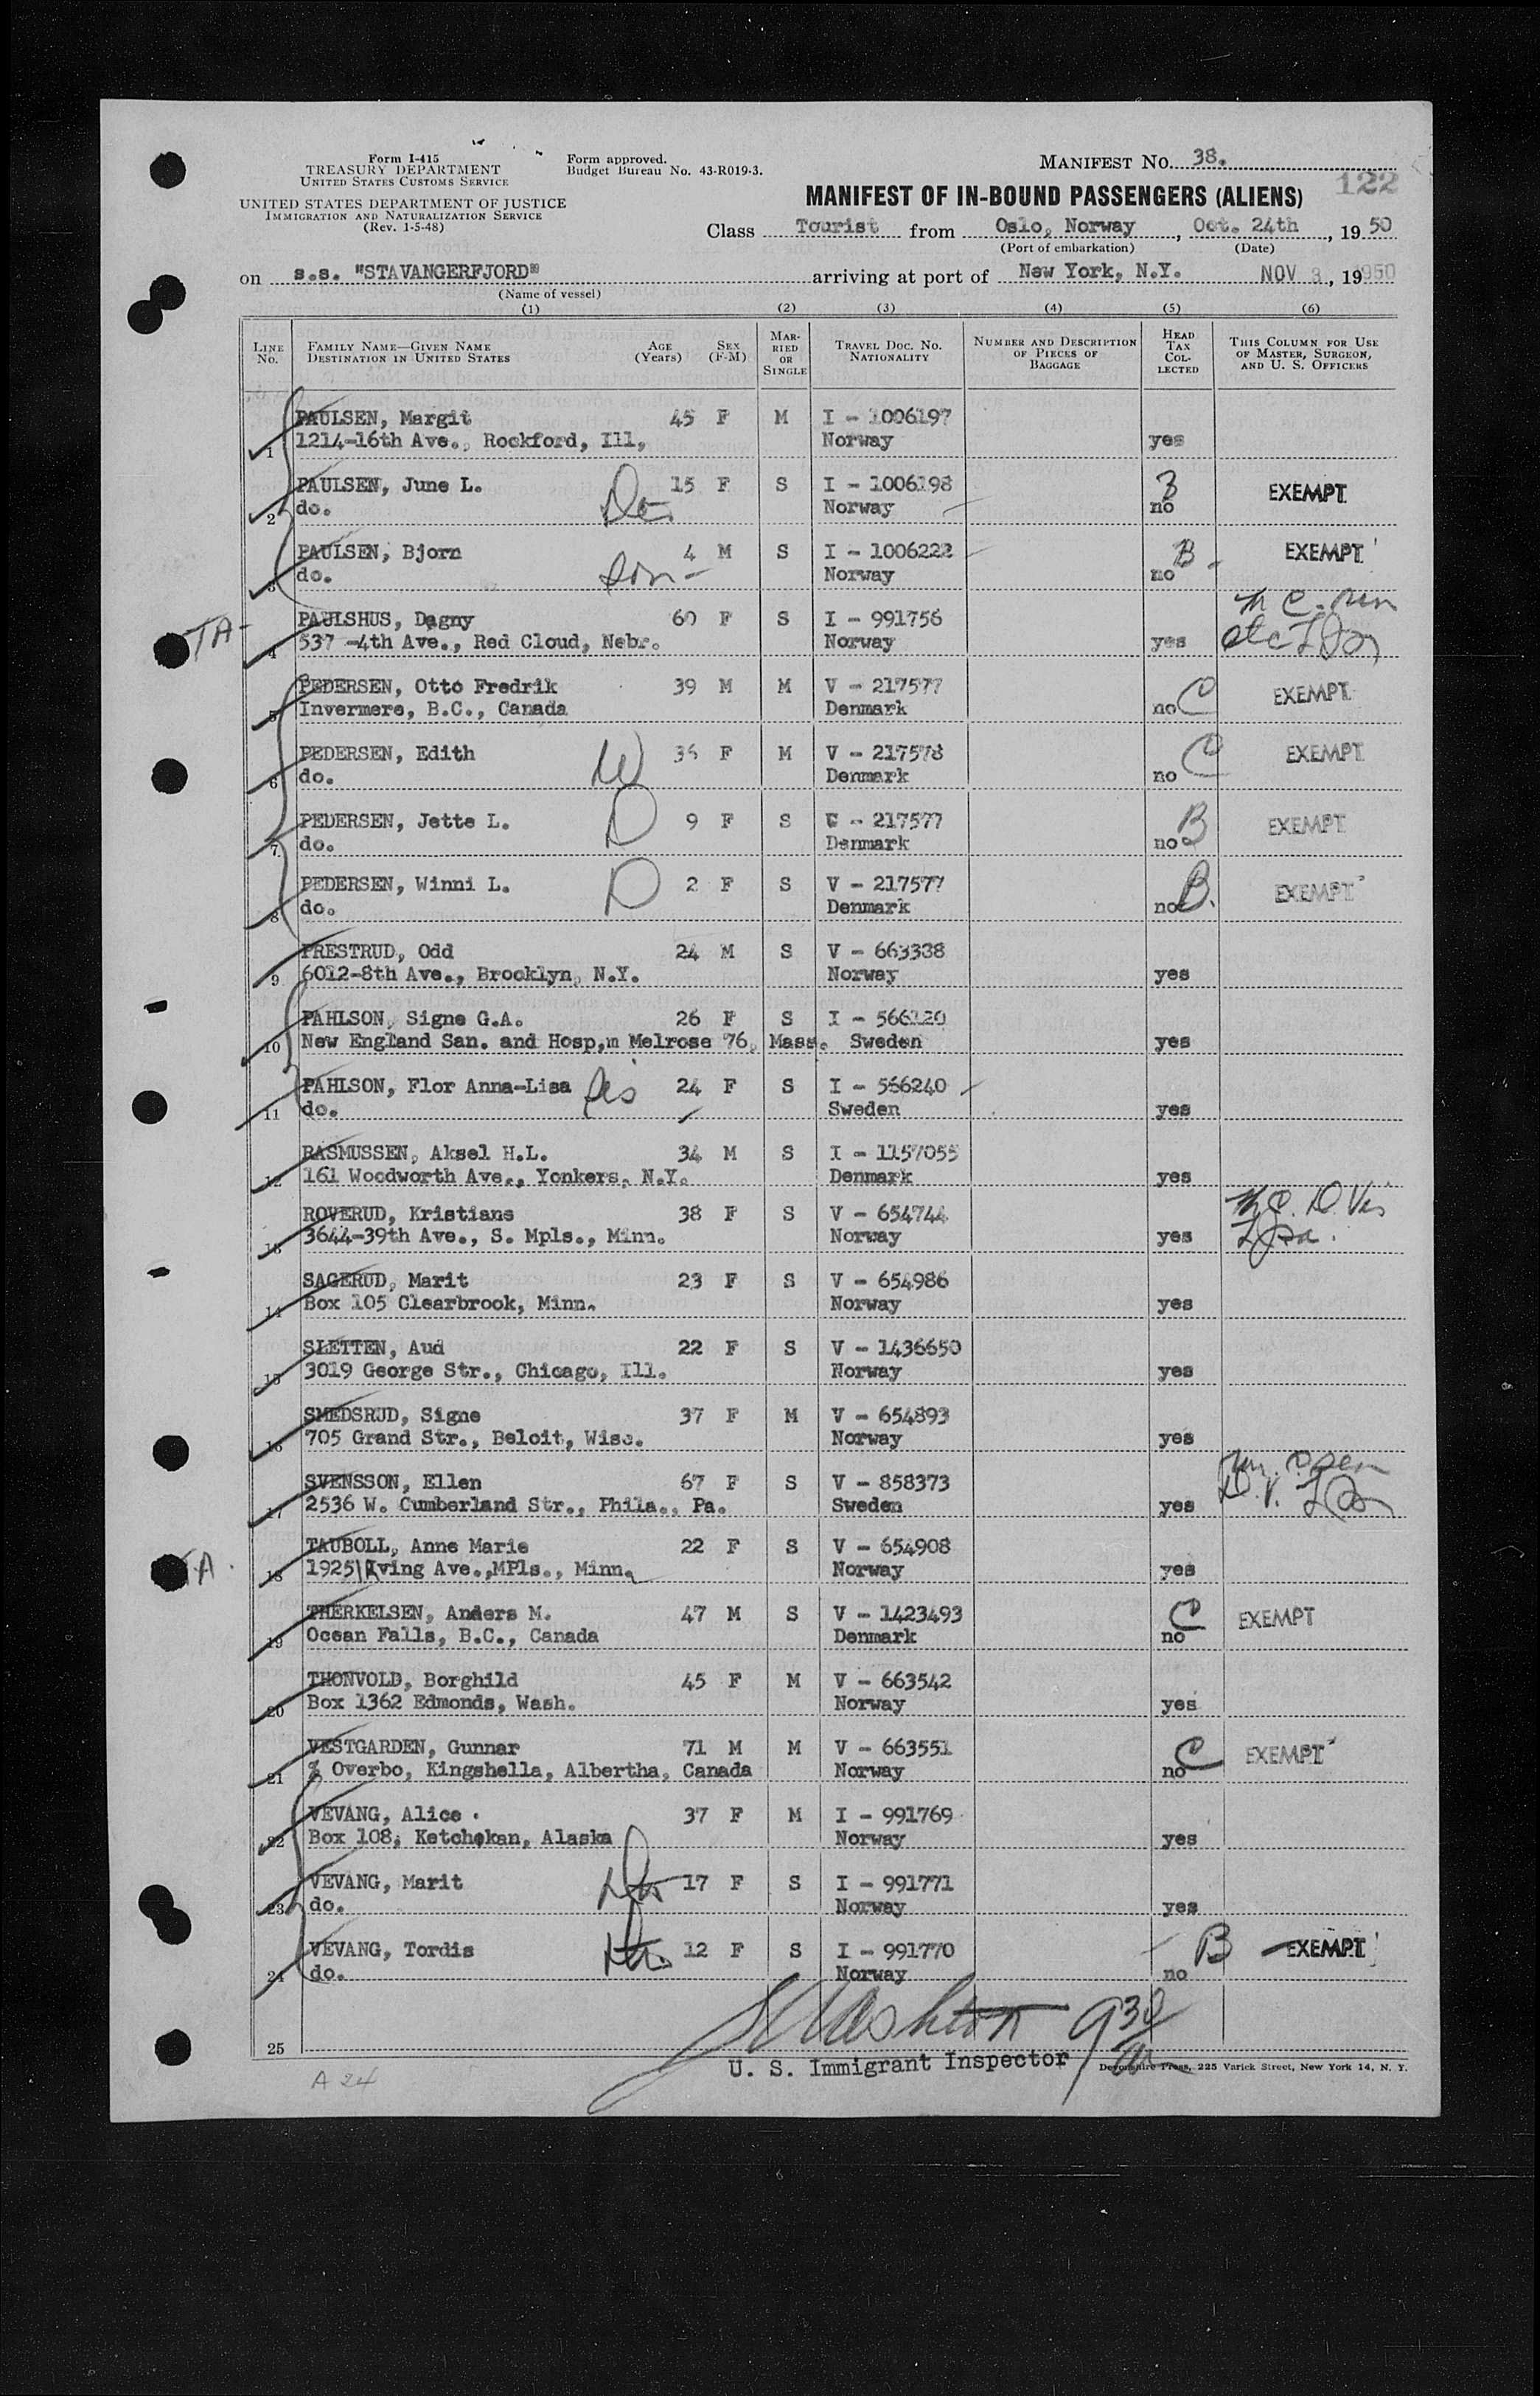 Form I-415
TREASURY DEPARTMENT
UNITED STATES CUSTOMS SERVICE
UNITED STATES DEPARTMENT OF JUSTICE
IMMIGRATION AND NATURALIZATION SERVICE
(Rev. 1-5-48)
Form approved.
Budget Bureau No. 43-R019-3.
MANIFEST NO. 38.
122
MANIFEST OF IN-BOUND PASSENGERS (ALIENS)
Class Tourist from Oslo, Norway, Oct. 24th, 1950
(Port of embarkation) (Date)
on s.s. "STAVANGERFJORD" arriving at port of New York, N.Y. NOV 3, 19950
(Name of vessel)
(1) (2) (3) (4) (5) (6)
LINE NO. FAMILY NAME—GIVEN NAME DESTINATION IN UNITED STATES AGE (Years) SEX (F-M) MARRIED OR SINGLE TRAVEL DOC. NO. NATIONALITY NUMBER AND DESCRIPTION OF PIECES OF BAGGAGE HEAD TAX COLLECTED THIS COLUMN FOR USE OF MASTER, SURGEON, AND U. S. OFFICERS
PAULSEN, Margit 45 F M I - 1006197
1 1214-16th Ave., Rockford, Ill, Norway yes
PAULSEN, June L. 15 F S I - 1006198 B EXEMPT
2 do. Norway no
PAULSEN, Bjorn 4 M S I - 1006222 B EXEMPT
3 do. son Norway no
TA- PAULSHUS, Dagny 60 F S I - 991756
4 537 -4th Ave., Red Cloud, Nebr. Norway yes
PEDERSEN, Otto Fredrik 39 M M V - 217577 EXEMPT
5 Invermere, B.C., Canada Denmark no C
PEDERSEN, Edith W 36 F M V - 217578 C EXEMPT
6 do. Denmark no
PEDERSEN, Jette L. D 9 F S V - 217577 B EXEMPT
7 do. Denmark no
PEDERSEN, Winni L. D 2 F S V - 217577 B. EXEMPT
8 do. Denmark no
PRESTRUD, Odd 24 M S V - 663338
9 6012-8th Ave., Brooklyn, N.Y. Norway yes
PAHLSON, Signe G.A. 26 F S I - 566120
10 New England San. and Hosp,m Melrose 76, Mass. Sweden yes
PAHLSON, Flor Anna-Lisa sis 24 F S I - 566240
11 do. Sweden yes
RASMUSSEN, Aksel H.L. 34 M S I - 1157055
12 161 Woodworth Ave., Yonkers, N.Y. Denmark yes
ROVERUD, Kristians 38 F S V - 654744
13 3644-39th Ave., S. Mpls., Minn. Norway yes
SAGERUD, Marit 23 F S V - 654986
14 Box 105 Clearbrook, Minn. Norway yes
SLETTEN, Aud 22 F S V - 1436650
15 3019 George Str., Chicago, Ill. Norway yes
SMEDSRUD, Signe 37 F M V - 654893
16 705 Grand Str., Beloit, Wisc. Norway yes
SVENSSON, Ellen 67 F S V - 858373
17 2536 W. Cumberland Str., Phila., Pa. Sweden yes
TAUBOLL, Anne Marie 22 F S V - 654908
TA. 18 1925 Irving Ave.,MPls., Minn. Norway yes
THERKELSEN, Anders M. 47 M S V - 1423493 C EXEMPT
19 Ocean Falls, B.C., Canada Denmark no
THONVOLD, Borghild 45 F M V - 663542
20 Box 1362 Edmonds, Wash. Norway yes
VESTGARDEN, Gunnar 71 M M V - 663551 C EXEMPT
21 % Overbo, Kingshella, Albertha, Canada Norway no
VEVANG, Alice 37 F M I - 991769
22 Box 108, Ketchekan, Alaska Norway yes
VEVANG, Marit 17 F S I - 991771
23 do. Norway yes
VEVANG, Tordis 12 F S I - 991770 B EXEMPT
24 do. Norway no
25
930
U. S. Immigrant Inspector
Devonshire Press, 225 Varick Street, New York 14, N. Y.
A 24